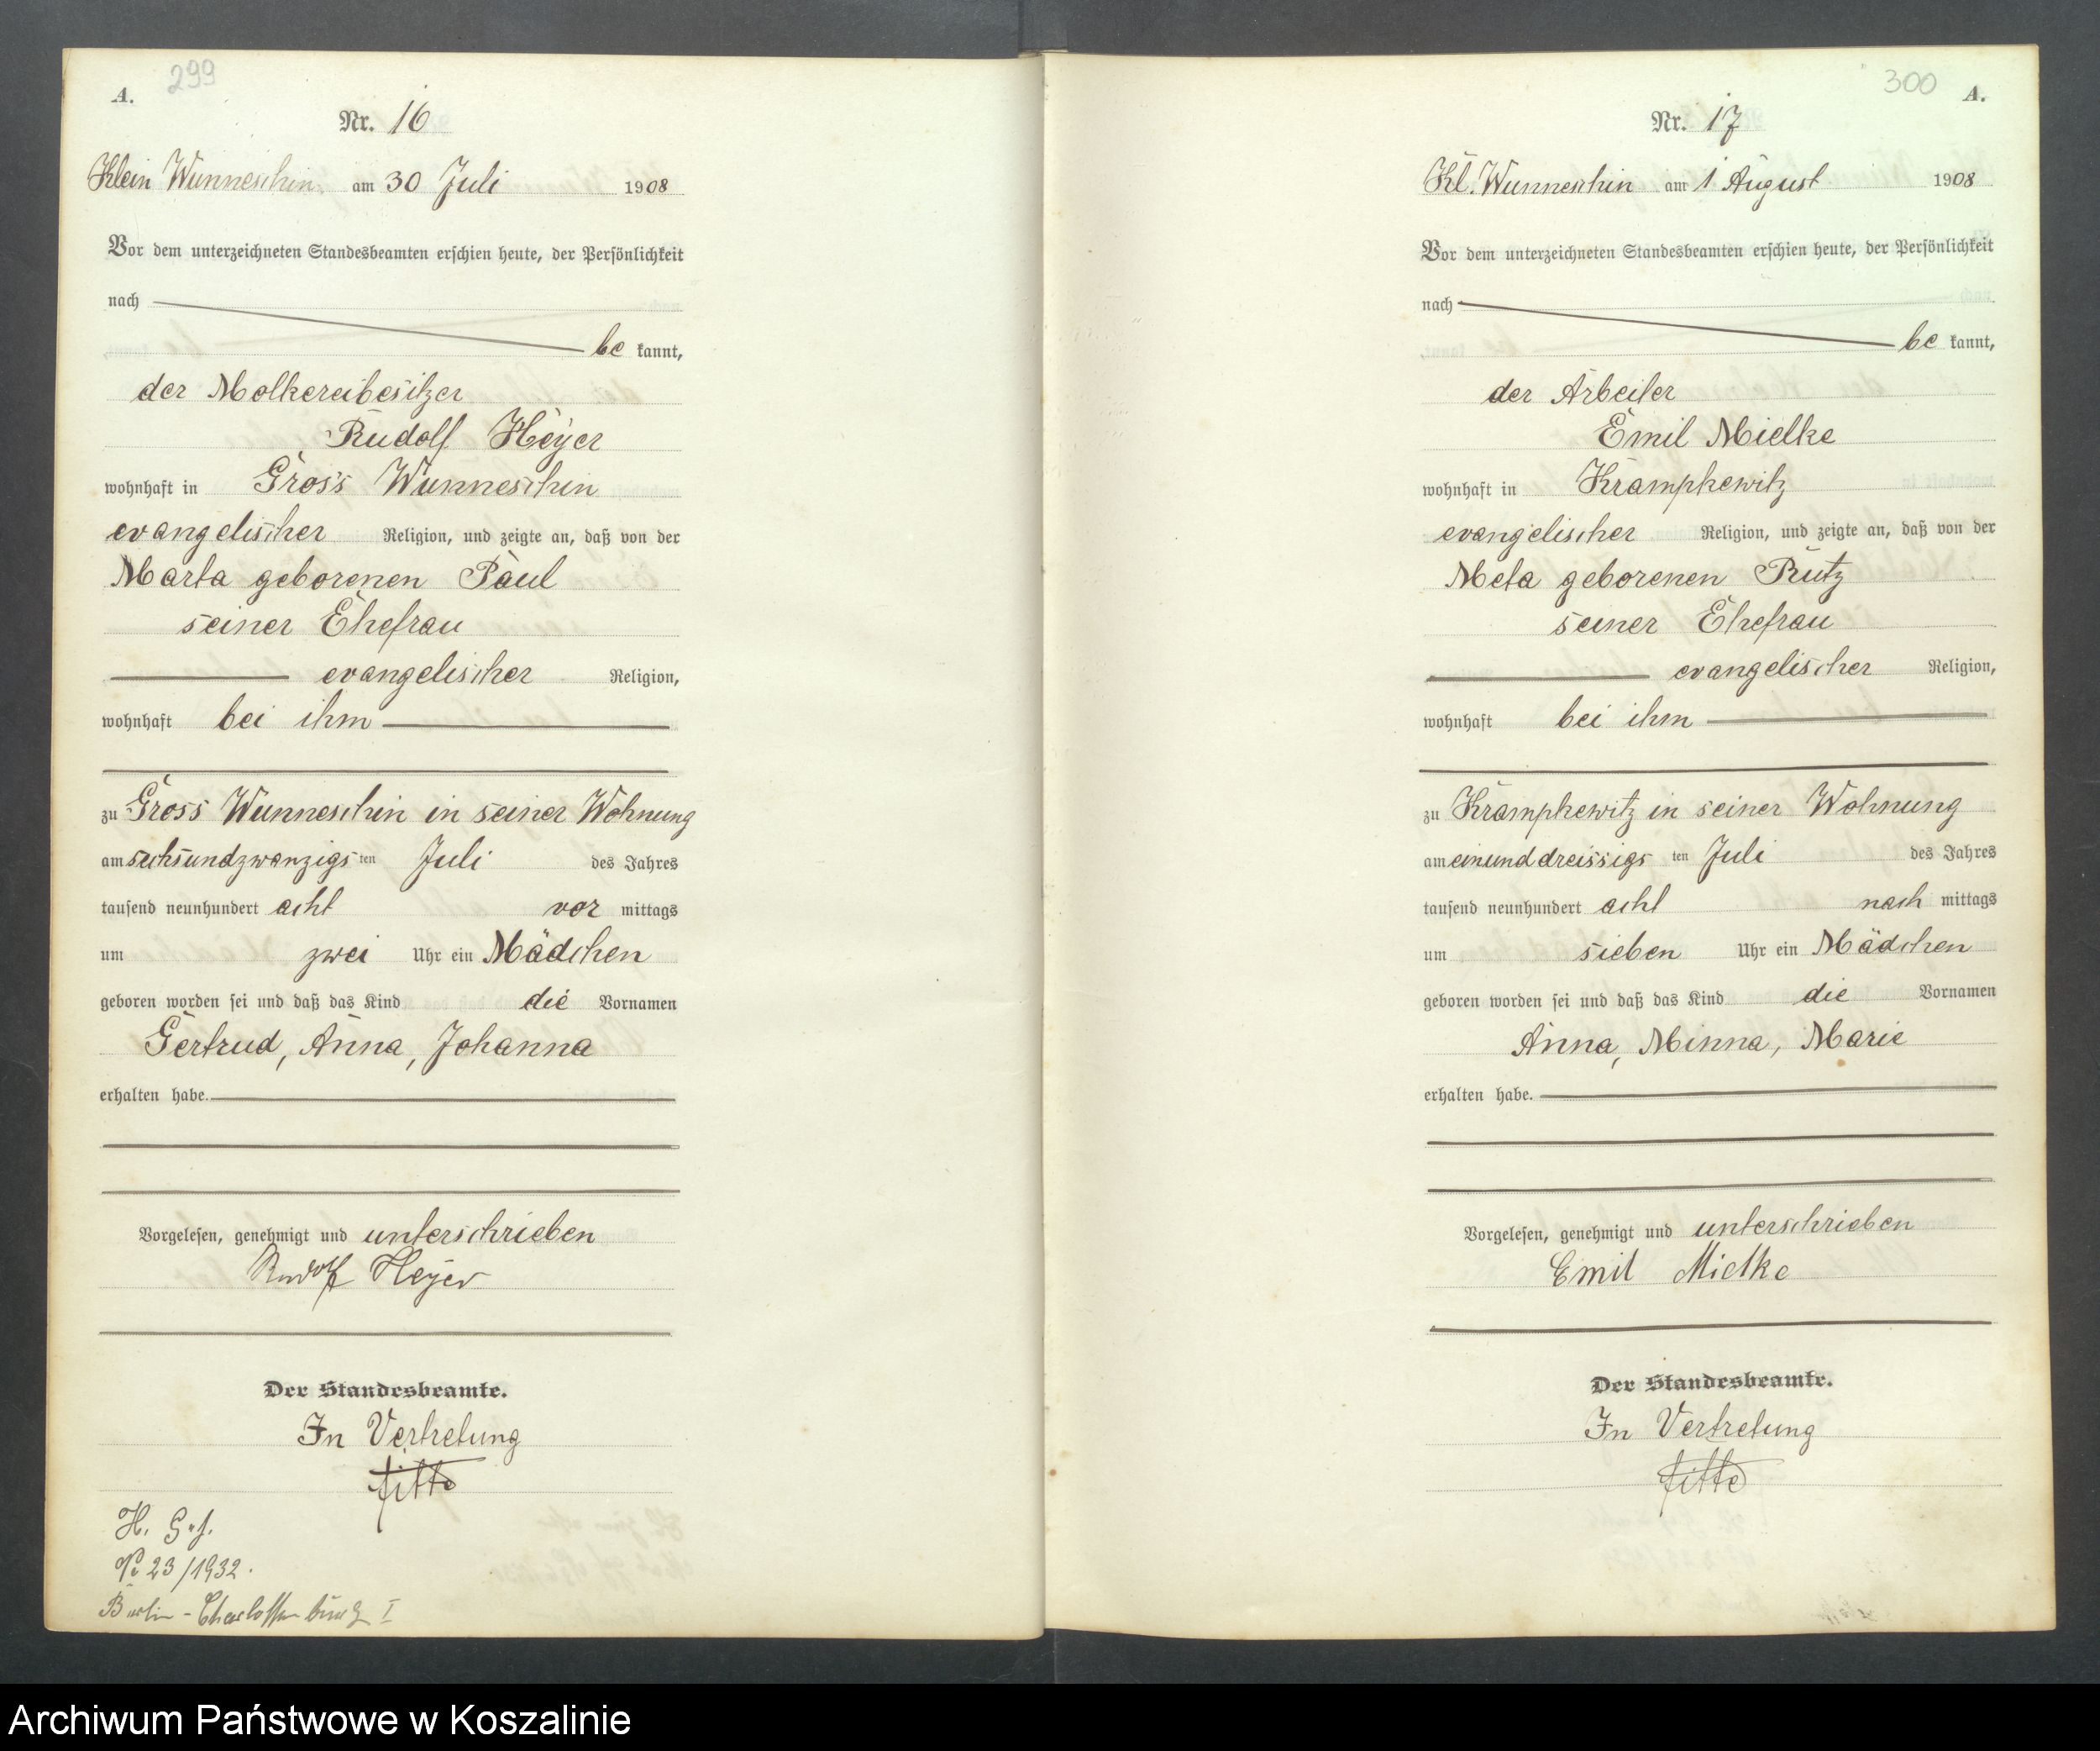 299
A.
Nr. 16
Klein Wunneschin, am 30 Juli 1908
Vor dem unterzeichneten Standesbeamten erschien heute, der Persönlichkeit
nach
be kannt,
der Molkereibesitzer
Rudolf Heyer
wohnhaft in Gross Wunneschin
evangelischer Religion, und zeigte an, daß von der
Marta geborenen Paul
seiner Ehefrau
evangelischer Religion,
wohnhaft bei ihm
zu Gross Wunneschin in seiner Wohnung
am sechsundzwanzigs ten Juli des Jahres
tausend neunhundert acht vor mittags
um zwei Uhr ein Mädchen
geboren worden sei und daß das Kind die Vornamen
Gertrud, Anna, Johanna
erhalten habe.
Vorgelesen, genehmigt und unterschrieben
Rudolf Heyer
Der Standesbeamte.
In Vertretung
H.
No 23/1932.
Berlin-Charlottenburg I
300
A.
Nr. 17
Kl. Wunneschin am 1 August 1908
Vor dem unterzeichneten Standesbeamten erschien heute, der Persönlichkeit
nach
be kannt,
der Arbeiter
Emil Mielke
wohnhaft in Krampkewitz
evangelischer Religion, und zeigte an, daß von der
Meta geborenen Rutz
seiner Ehefrau
evangelischer Religion,
wohnhaft bei ihm
zu Krampkewitz in seiner Wohnung
am einunddreissigs ten Juli des Jahres
tausend neunhundert acht nach mittags
um sieben Uhr ein Mädchen
geboren worden sei und daß das Kind die Vornamen
Anna, Minna, Marie
erhalten habe.
Vorgelesen, genehmigt und unterschrieben
Emil Mielke
Der Standesbeamte.
In Vertretung
Archiwum Państwowe w Koszalinie